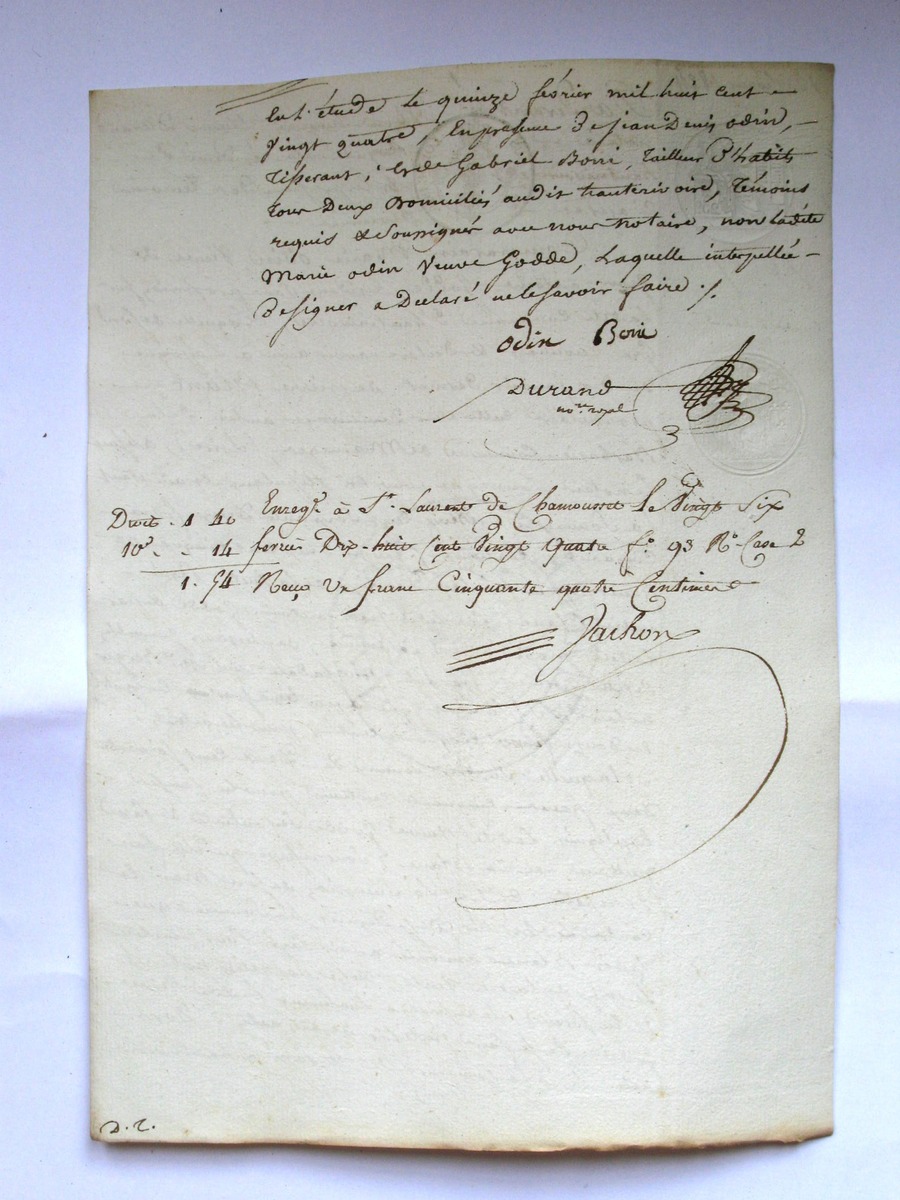 En l'étude le quinze février mil huit cent
vingt quatre, En presence de jean Denis odin,
Tisserant, & de Gabriel Boni, Tailleur d'habits
tous Deux Domiciliés audit hauterivoire, Témoins
requis & Soussignés avec nous Notaire, non ladite
Marie odin Veuve Godde, Laquelle interpellée
de signer a Declaré ne le savoir faire ./.
odin Boni
Durand
no.re royal
Enregé à St. Laurent de Chamousset le Vingt Six
Droit . 1 40
fevrier Dix-huit Cent Vingt quatre fo. 93 Ro. Case 2
10e . - 14
Reçu Un franc Cinquante quatre Centimes
1. 54
Vachon
D. T.